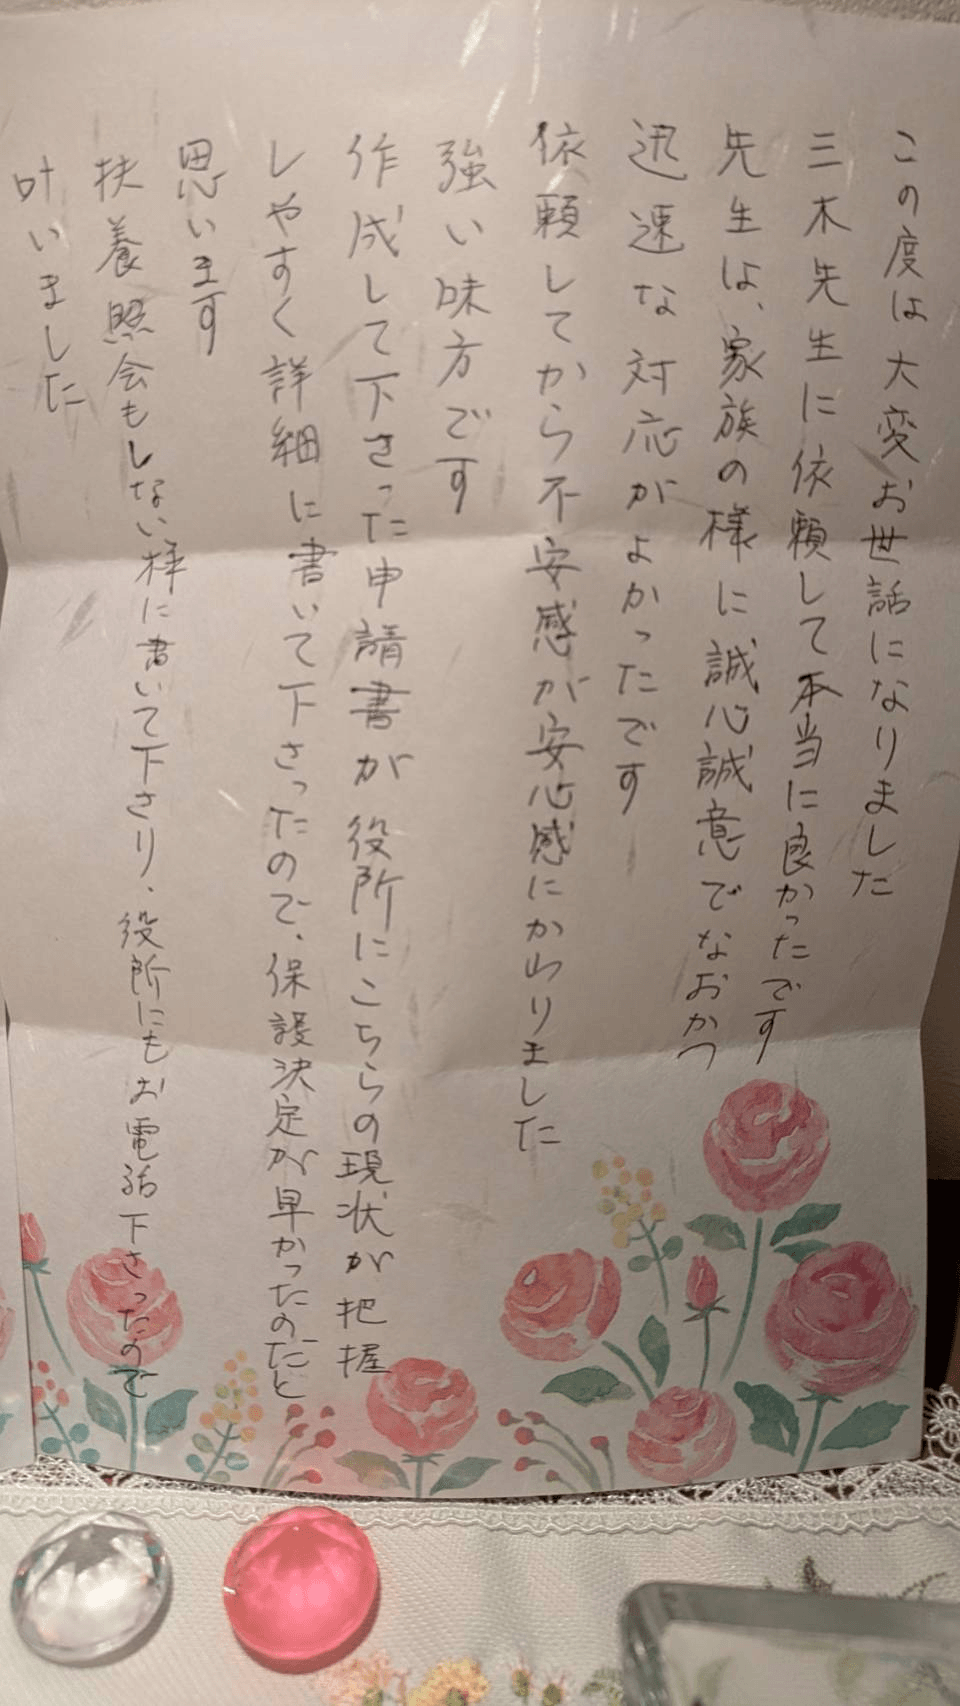 この度は大変お世話になりました
三木先生に依頼して本当に良かったです
先生は、家族の様に誠心誠意でなおかつ
迅速な対応がよかったです
依頼してから不安感が安心感にかわりました
強い味方です
作成して下さった申請書が役所にこちらの現状が把握
しやすく詳細に書いて下さったので、保護決定が早かったのだと
思います
扶養照会もしない様に書いて下さり、役所にもお電話下さったので
叶いました